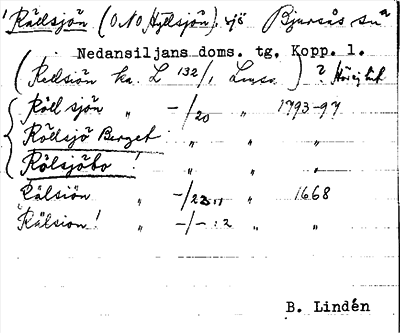 Rällsjön (O.N.O Hyllsjön), sjö Bjursås sn
Nedansiljans doms. tg. Kopp. l.
(Rällsiön ka. L 132/1 Lmsr. ) ?
Röll sjön " -/20 " 1793-97
Röllsjö Berget " " " "
Rölsjöbo! " " " "
Rälsiön " -/22 " 1668
Rälsion! " -/- : 2 " "
B. Lindén